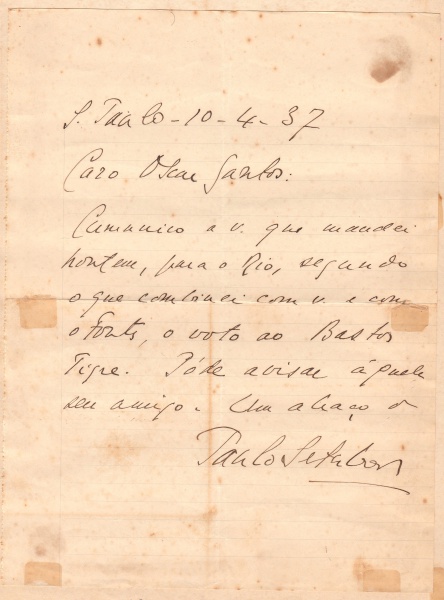 S. Paulo - 10 - 4 - 37
Caro Oscar Santos:
Communico a v. que mandei
hontem, para o Rio, segundo
o que combinei com v. e com
o Fontes, o voto ao Bastos
Tigre. Póde avisar áquele
seu amigo. Um abraço do
Paulo Setubal